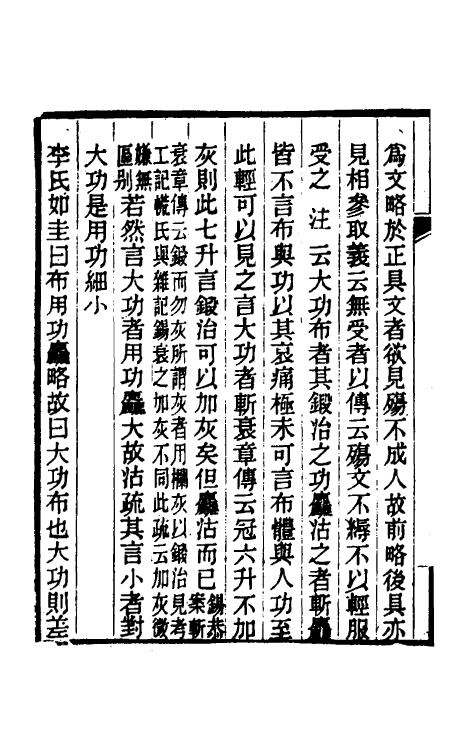 為文略於正具文者欲見殤不成人故前略後具亦
見相參取義云無受者以傳云殤文不縟不以輕服
受之　注　云大功布者其鍛治之功麤沽之者斬麤
皆不言布與功以其哀痛極未可言布體與人功至
此輕可以見之言大功者斬衰章傳云冠六升不加
灰則此七升言鍛治可以加灰矣但麤沽而已錫恭案斬
衰章傳云鍛而勿灰所謂灰者用欄灰以鍛治見考
工記㡛氏與雜記錫衰之加灰不同此疏云加灰微
嫌無區別若然言大功者用功麤大故沽疏其言小者對
大功是用功細小
李氏如圭曰布用功麤略故曰大功布也大功則差